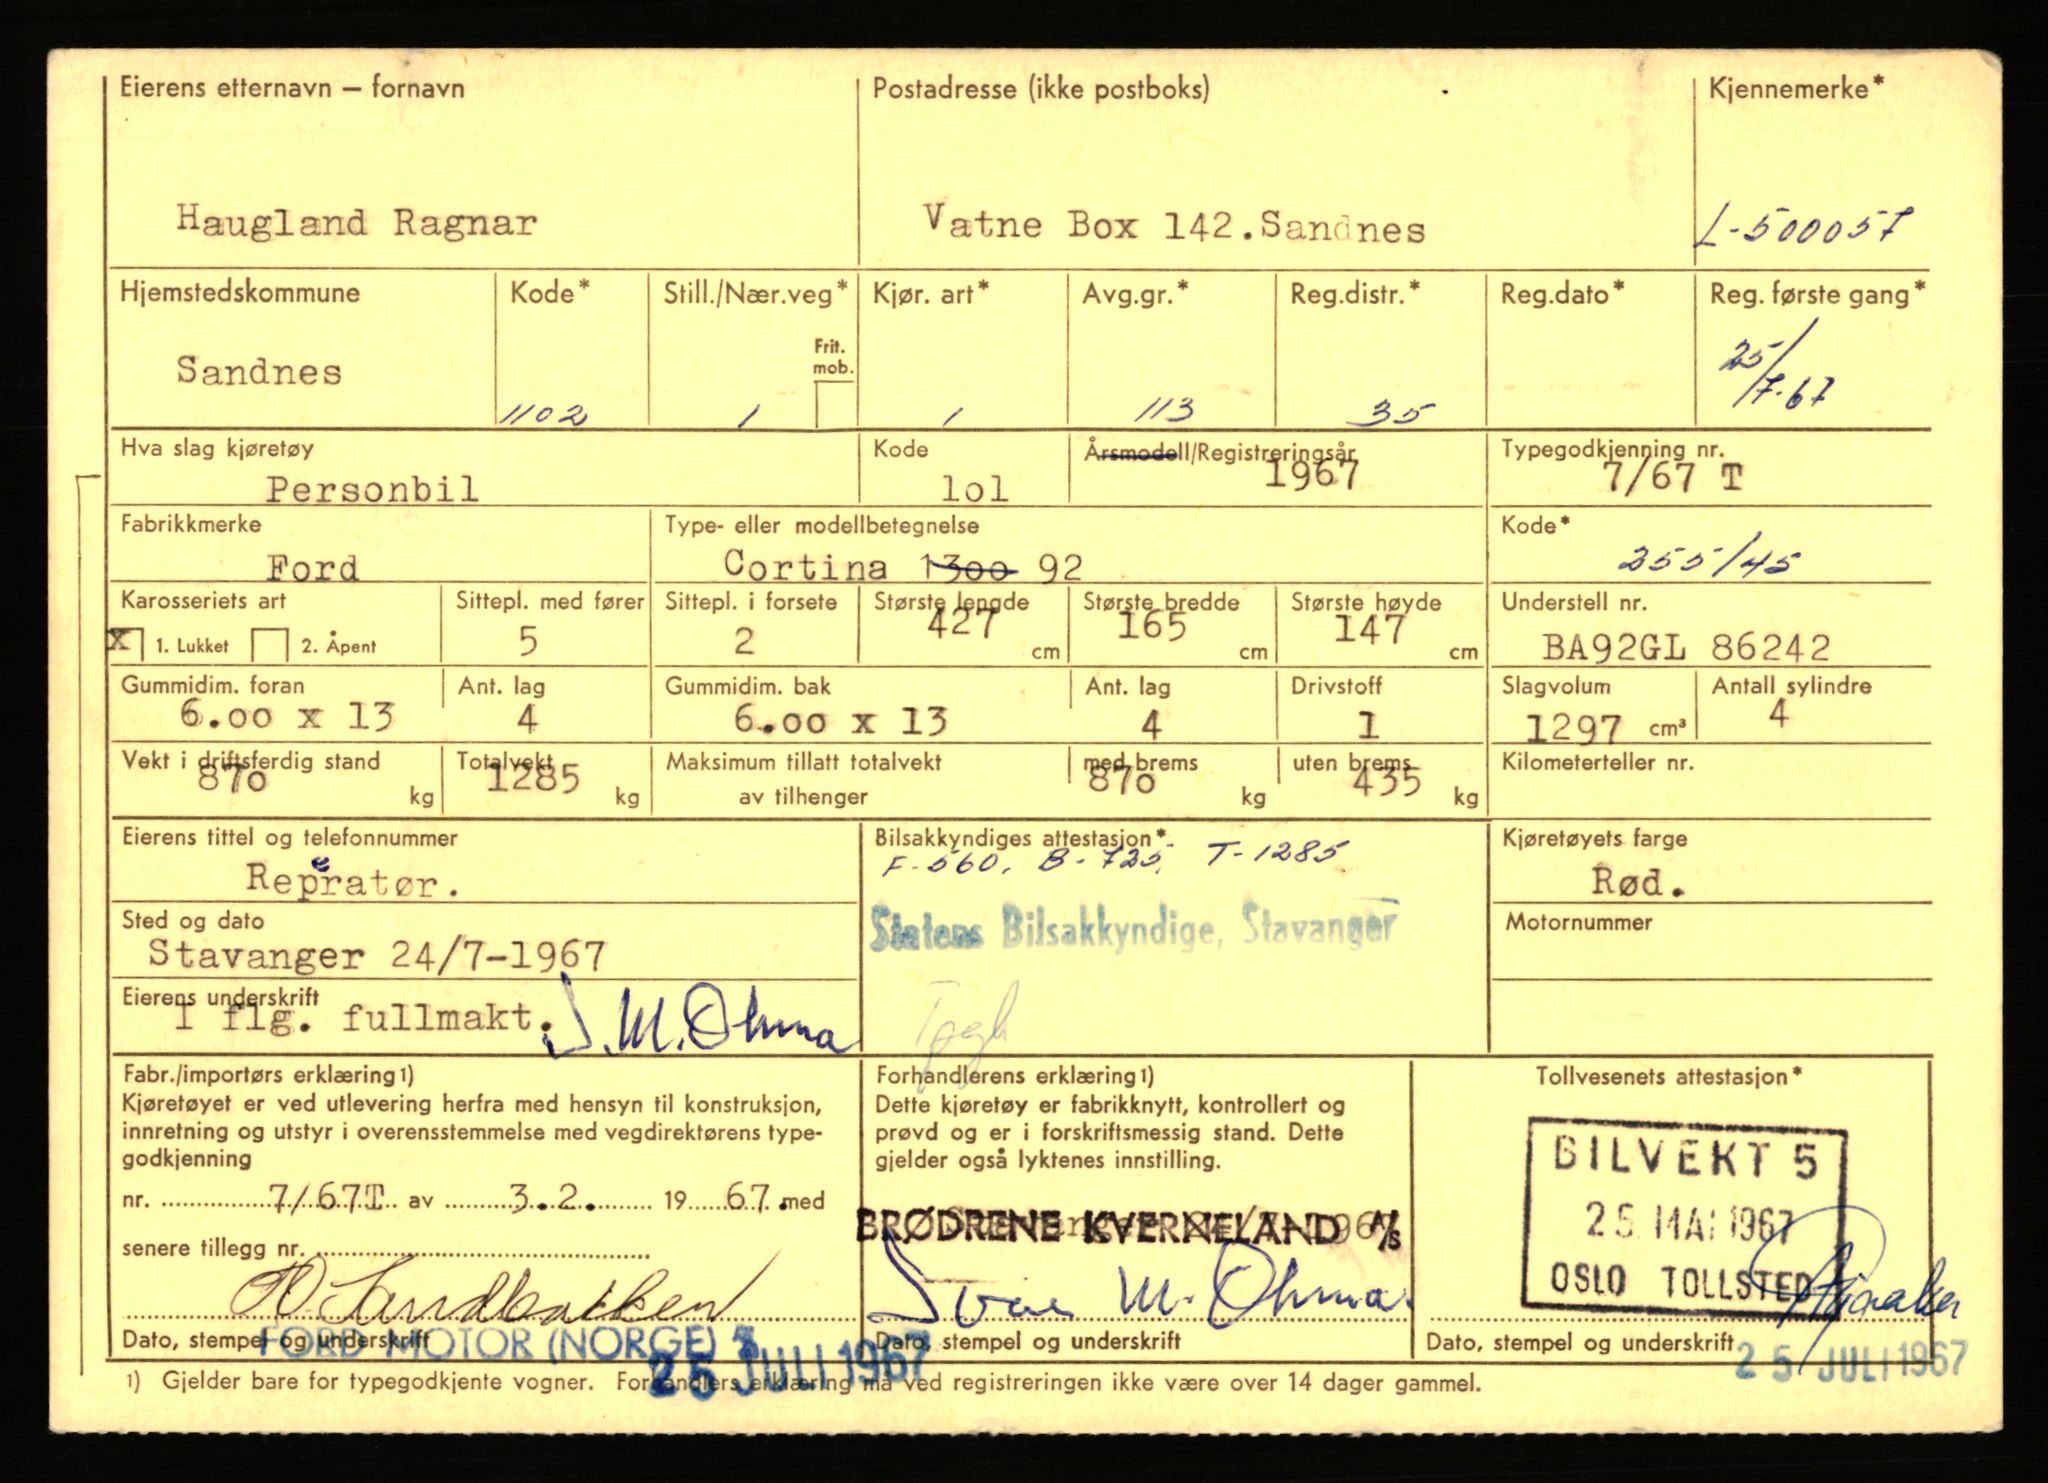 Eierens etternavn — fornavn Postadresse (ikke postboks) Kjennemerke*
Haugland Ragnar Vatne Box 142.Sandnes L-500057
Hjemstedskommune Kode* Still./Nær.veg* Kjør. art* Avg.gr.* Reg.distr.* Reg.dato* Reg. første gang*
Frit. mob.
Sandnes 1102 1 1 113 35 25/7-67
Hva slag kjøretøy Kode Årsmodell/Registreringsår Typegodkjenning nr.
Personbil lol 1967 7/67 T
Fabrikkmerke Type- eller modellbetegnelse Kode*
Ford Cortina 1300 92 255/45
Karosseriets art Sittepl. med fører Sittepl. i forsete Største lengde Største bredde Største høyde Understell nr.
X 1. Lukket 2. Åpent 5 2 427 cm 165 cm 147 cm BA92GL 86242
Gummidim. foran Ant. lag Gummidim. bak Ant. lag Drivstoff Slagvolum Antall sylindre
6.oo x 13 4 6.oo x 13 4 1 1297 cm³ 4
Vekt i driftsferdig stand Totalvekt Maksimum tillatt totalvekt med brems uten brems Kilometerteller nr.
87o kg 1285 kg av tilhenger 87o kg 435 kg
Eierens tittel og telefonnummer Bilsakkyndiges attestasjon* Kjøretøyets farge
F-560. B-725. T-1285
Reperatør. Rød.
Sted og dato Statens Bilsakkyndige, Stavanger Motornummer
Stavanger 24/7-1967
Eierens underskrift
I flg. fullmakt. S. M. Ohma
Fabr./importørs erklæring1) Forhandlerens erklæring1) Tollvesenets attestasjon*
Kjøretøyet er ved utlevering herfra med hensyn til konstruksjon, Dette kjøretøy er fabrikknytt, kontrollert og
innretning og utstyr i overensstemmelse med vegdirektørens type- prøvd og er i forskriftsmessig stand. Dette
godkjenning gjelder også lyktenes innstilling.
BILVEKT 5
25 MAI 1967
OSLO TOLLSTED
nr. 7/67T av 3.2. 19 67. med
BRØDRENE KVERNELAND A/S
senere tillegg nr.
Sandbakken M. Ohma
Dato, stempel og underskrift Dato, stempel og underskrift Dato, stempel og underskrift
FORD MOTOR (NORGE)
25 JULI 1967 25 JULI 1967
1) Gjelder bare for typegodkjente vogner. Forhandlers erklæring må ved registreringen ikke være over 14 dager gammel.